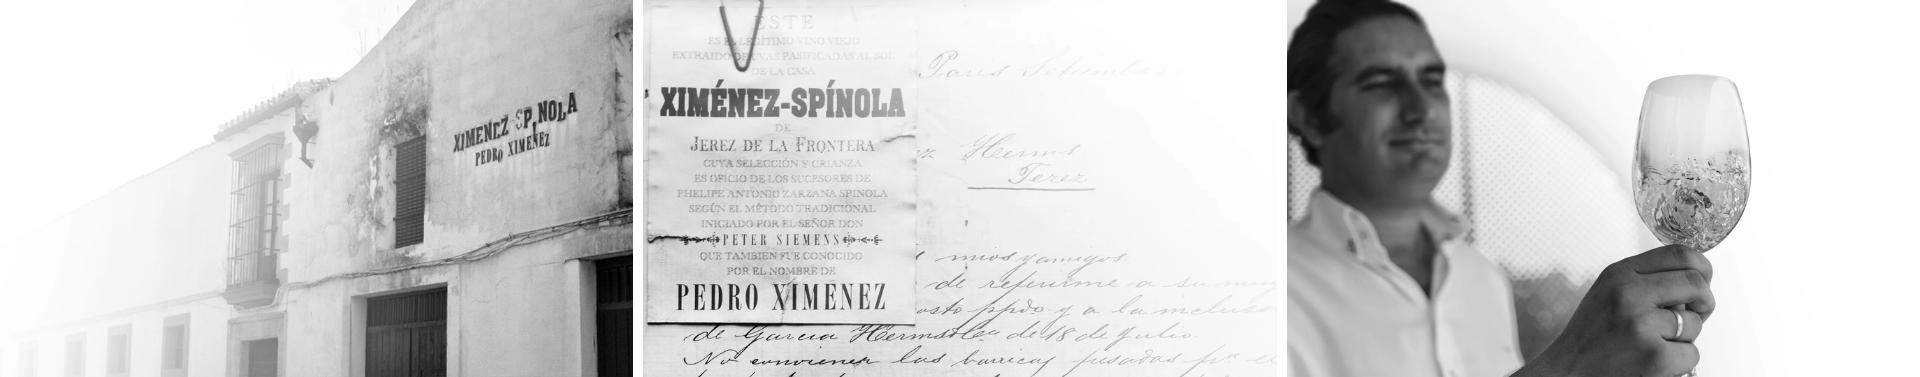 XIMENEZ-SPINOLA
PEDRO XIMENEZ
ESTE
ES EL LEGÍTIMO VINO VIEJO
EXTRAIDO DE UVAS PASIFICADAS AL SOL
DE LA CASA
XIMÉNEZ-SPÍNOLA
DE
JEREZ DE LA FRONTERA
CUYA SELECCIÓN Y CRIANZA
ES OFICIO DE LOS SUCESORES DE
PHELIPE ANTONIO ZARZANA SPINOLA
SEGÚN EL MÉTODO TRADICIONAL
INICIADO POR EL SEÑOR DON
PETER SIEMENS
QUE TAMBIEN FUE CONOCIDO
POR EL NOMBRE DE
PEDRO XIMENEZ
Paris
Herms
Jerez
mios y amigos.
de referirme a su
ppdo. y a la
de Garcia de 18 de Julio.
No convienen las barricas